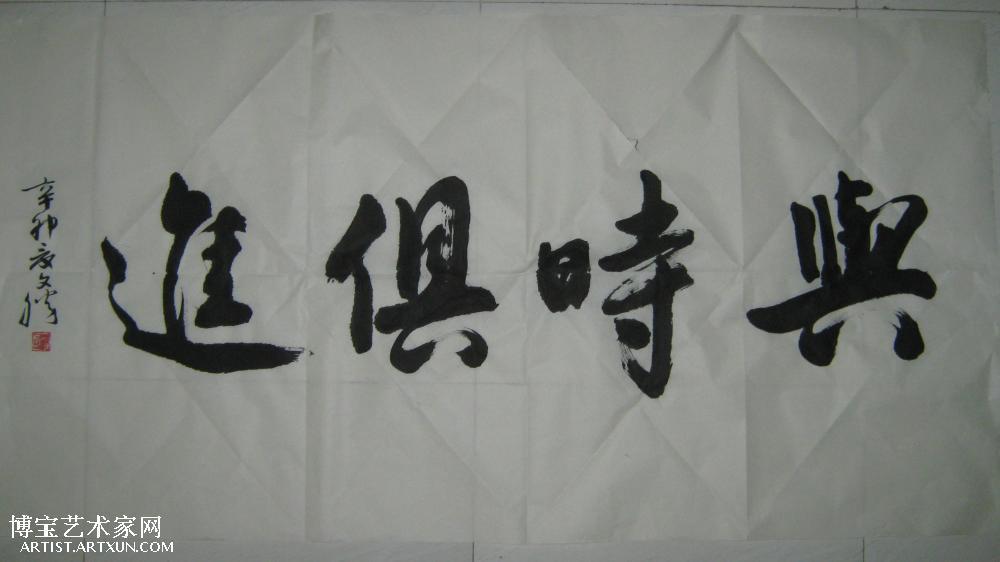 與時俱進
辛卯夏文勝
博宝艺术家网
ARTIST.ARTXUN.COM